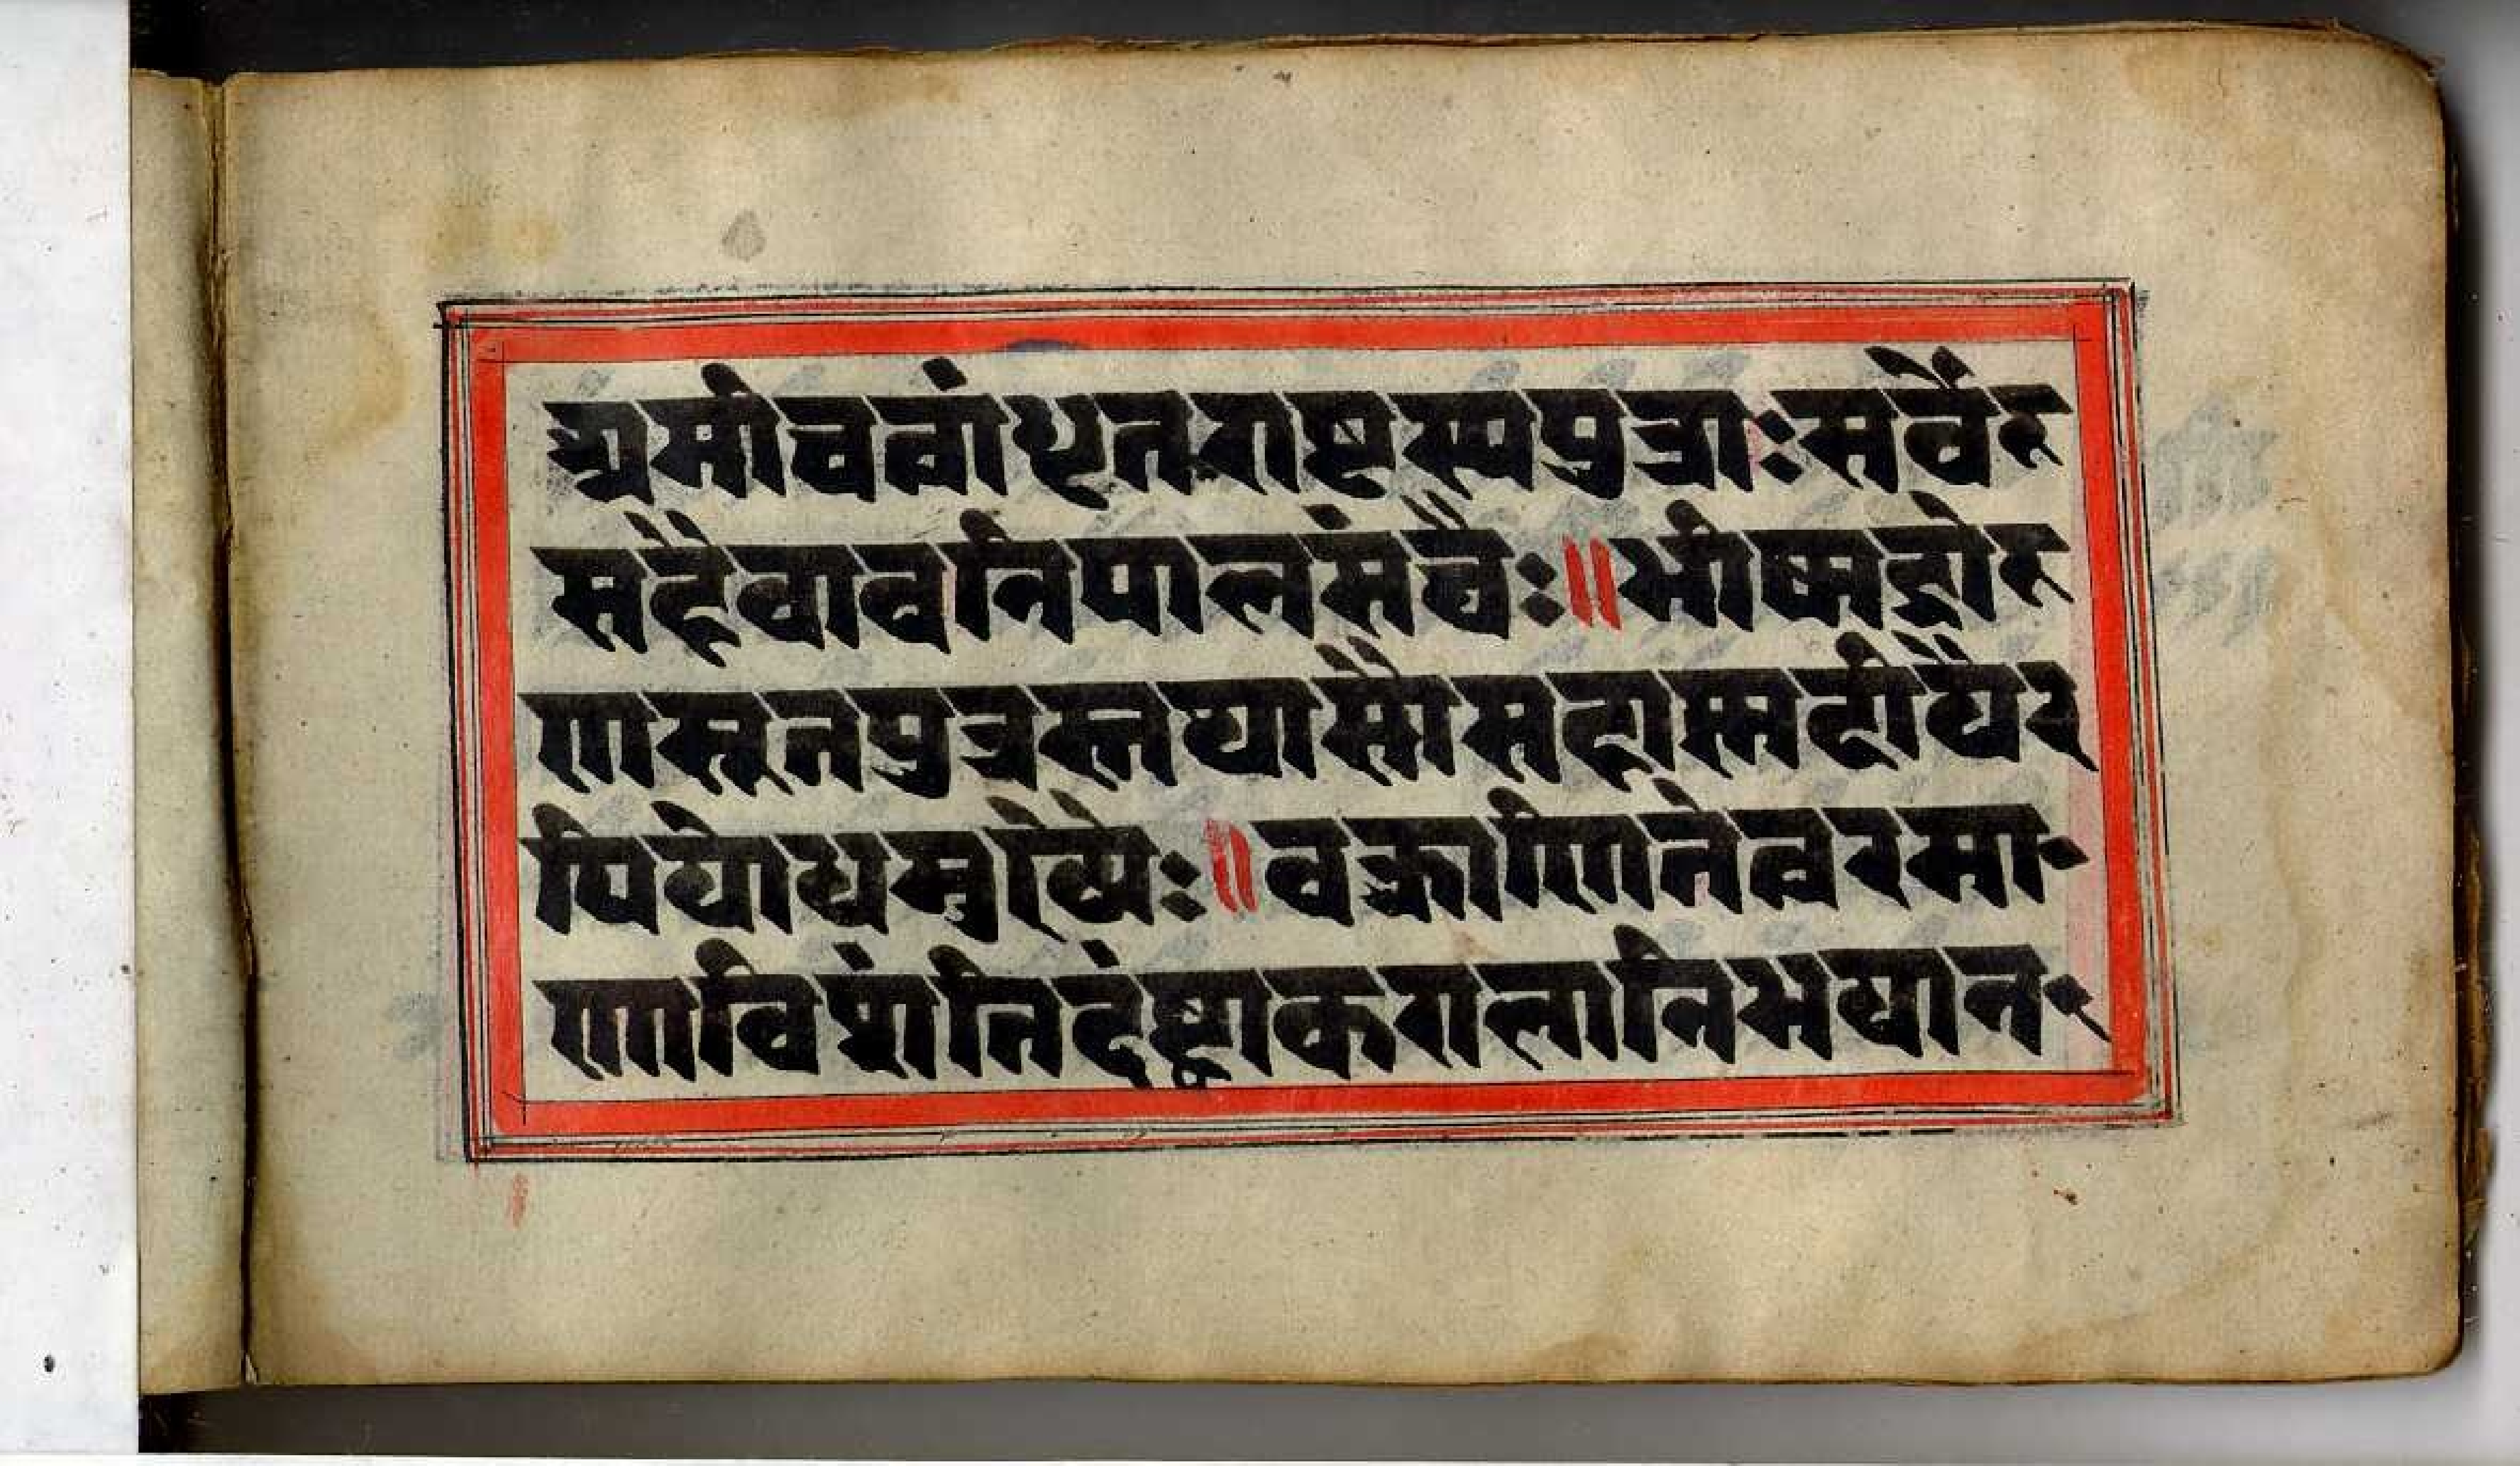 अमीचत्वांधृतराष्ट्रस्यपुत्राःसर्वैस
सहैवावनिपालसंघैः॥भीष्मद्रोर
णसूतपुत्रस्तथासौसहास्मदीयैर
पियोधमुख्यैः॥वक्त्राणितेत्वरमा-
णाविशंतिदंष्ट्राकरालानिभयान-